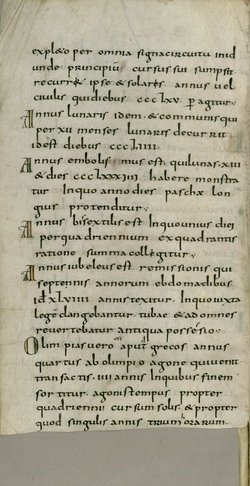 expl&o per omnia signa circuitu in id
unde principiū cursus sui sumpsit
recurr& ipse & solaris annus vel
civilis qui diebus ccclxv p agitur.
Annus lunaris idem & communis qui
per xii menses lunaris decurrit
id est diebus cccliiii
Annus embolismus est qui lunas xiii
& dies ccclxxxiiii habere monstra
tur In quo anno dies paschæ lon
gius protenditur.
Annus bisextilis est In quo unius diei
per quadriennium ex quadrantis
ratione summa collegitur.
Annus iubeleus est remissionis qui
septennis annorum ebdomadibus
id xlviiii annis texitur. In quo iuxta
lege clangebantur tubae & ad omnes
revertebatur antiqua possesio.
Olim pias vero aput grecos annus
quartus ab olimpio agone qui venit
transactis iiii annis In quibus finem
sortitur agonis tempus propter
quadriennii cursum solis & propter
quod singulis annis trium orarum